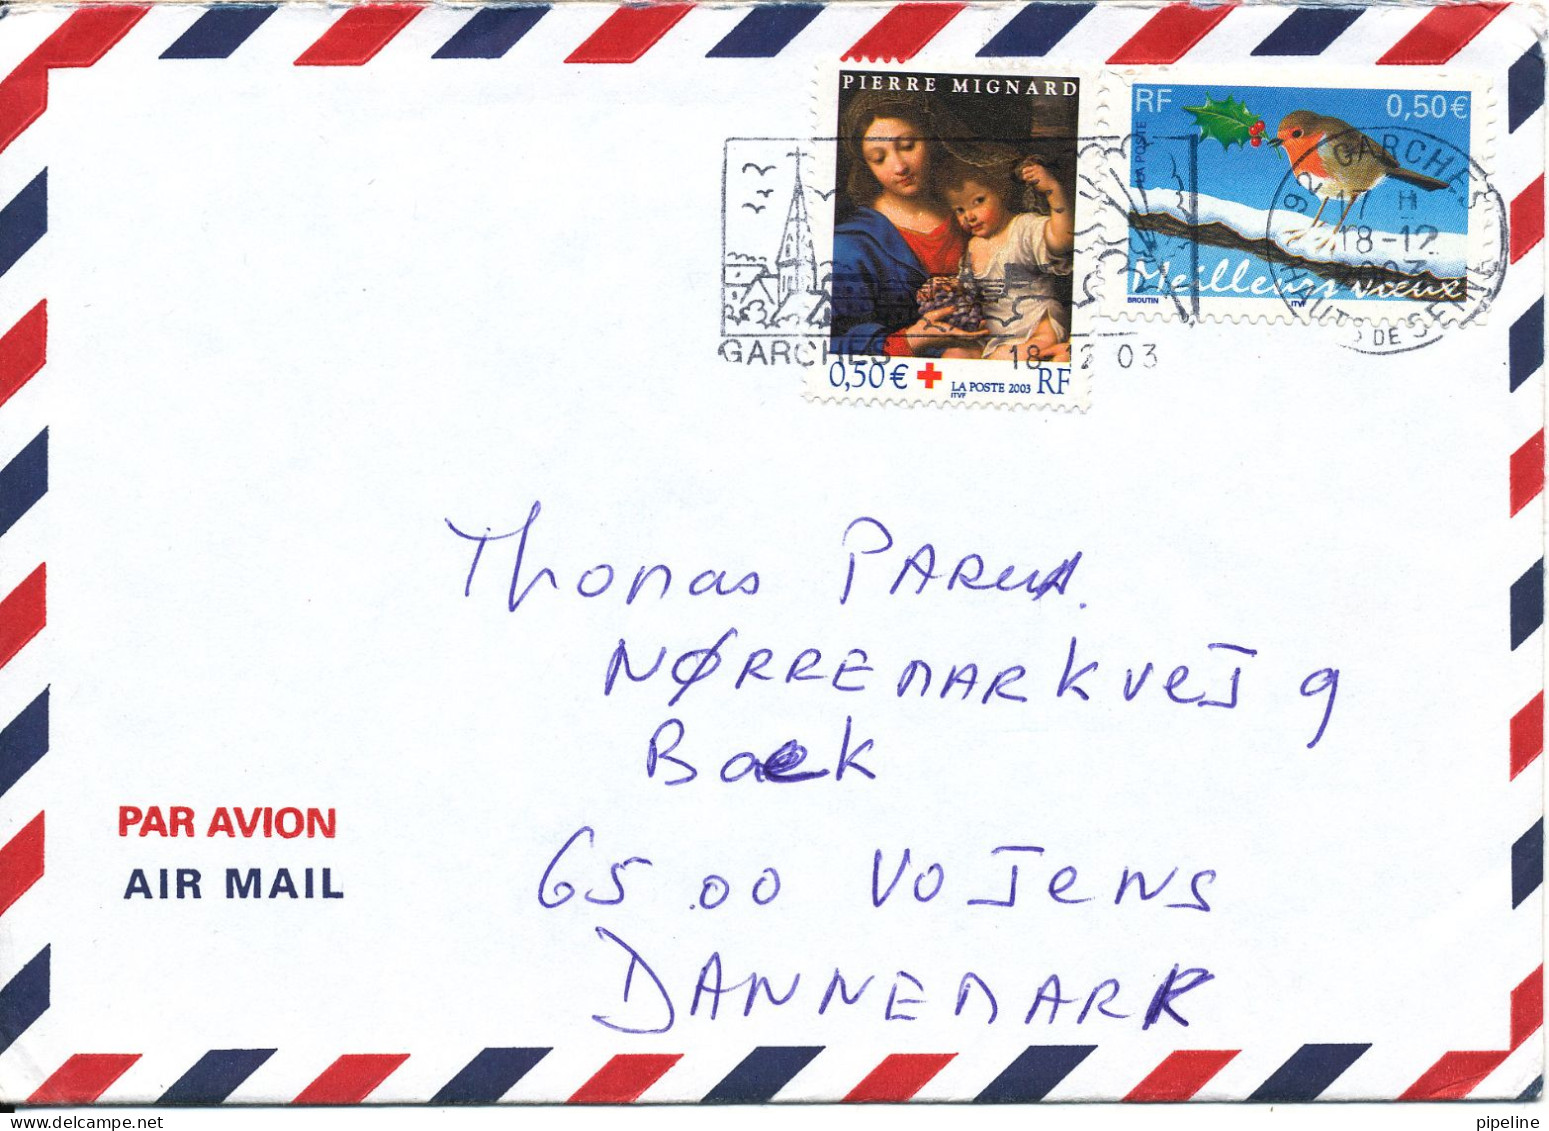 PIERRE MIGNARD
0,50 € + LA POSTE 2003 RF
ITVF
RF 0,50 €
LA POSTE
Meilleurs vœux
BROUTIN ITVF
GARCHES 18-12 03
92 GARCHES
17 H
18-12
2003
HAUTS DE SEINE
Thomas
NØRREMARKVEJ 9
Baek
6500 VOJENS
DANNEMARK
PAR AVION
AIR MAIL
pipeline